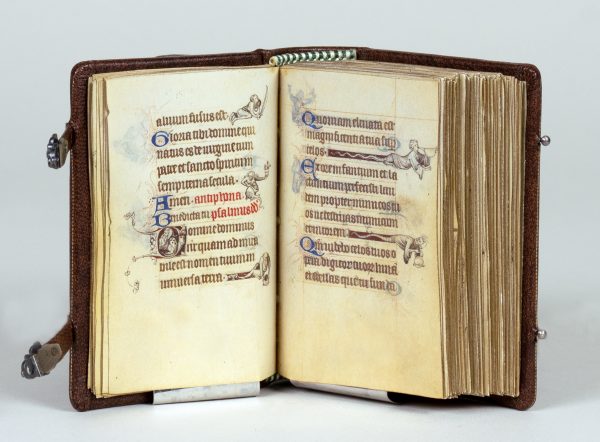 aluum fusus est.
Gloria tibi domine qui
natus es de uirgine cum
patre et sancto spiritu in
sempiterna secula.
Amen. antiphona
Benedicta tu. psalmus dd
Domine dominus
noster quam admira
bile est nomen tuum in
uniuersa terra.
Quoniam eleuata est
magnificentia tua super
celos.
Ex ore infantium et la
ctentium perfecisti lau
dem propter inimicos tu
os ut destruas inimicum
et ultorem.
celos tuos o
pera digitorum tuorum luna
et stellas que tu